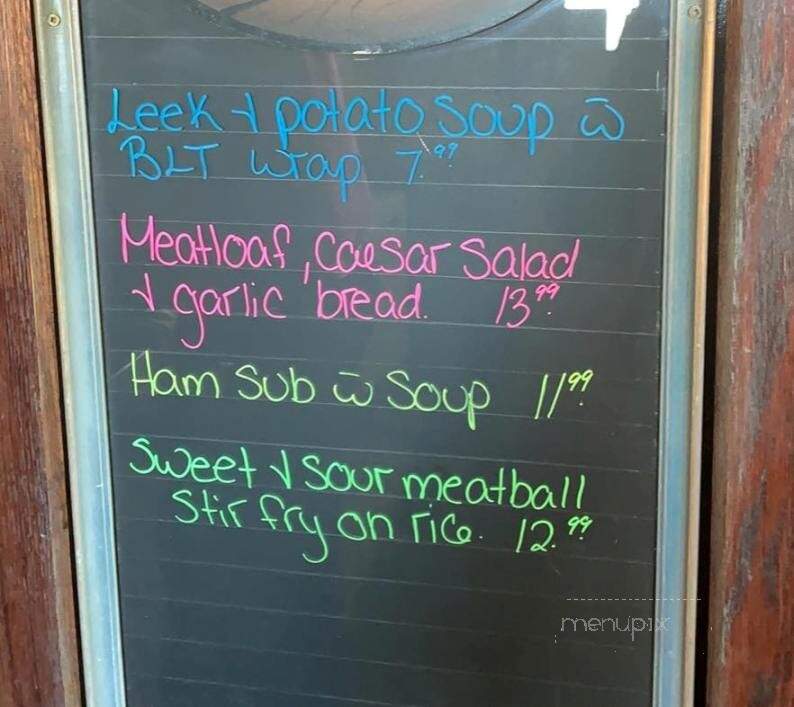 Leek & potato Soup w̄
BLT wrap 7.99
Meatloaf, Caesar Salad
& garlic bread. 13.99
Ham Sub w̄ Soup 11.99
Sweet & Sour meatball
Stir fry on rice. 12.99
menupix